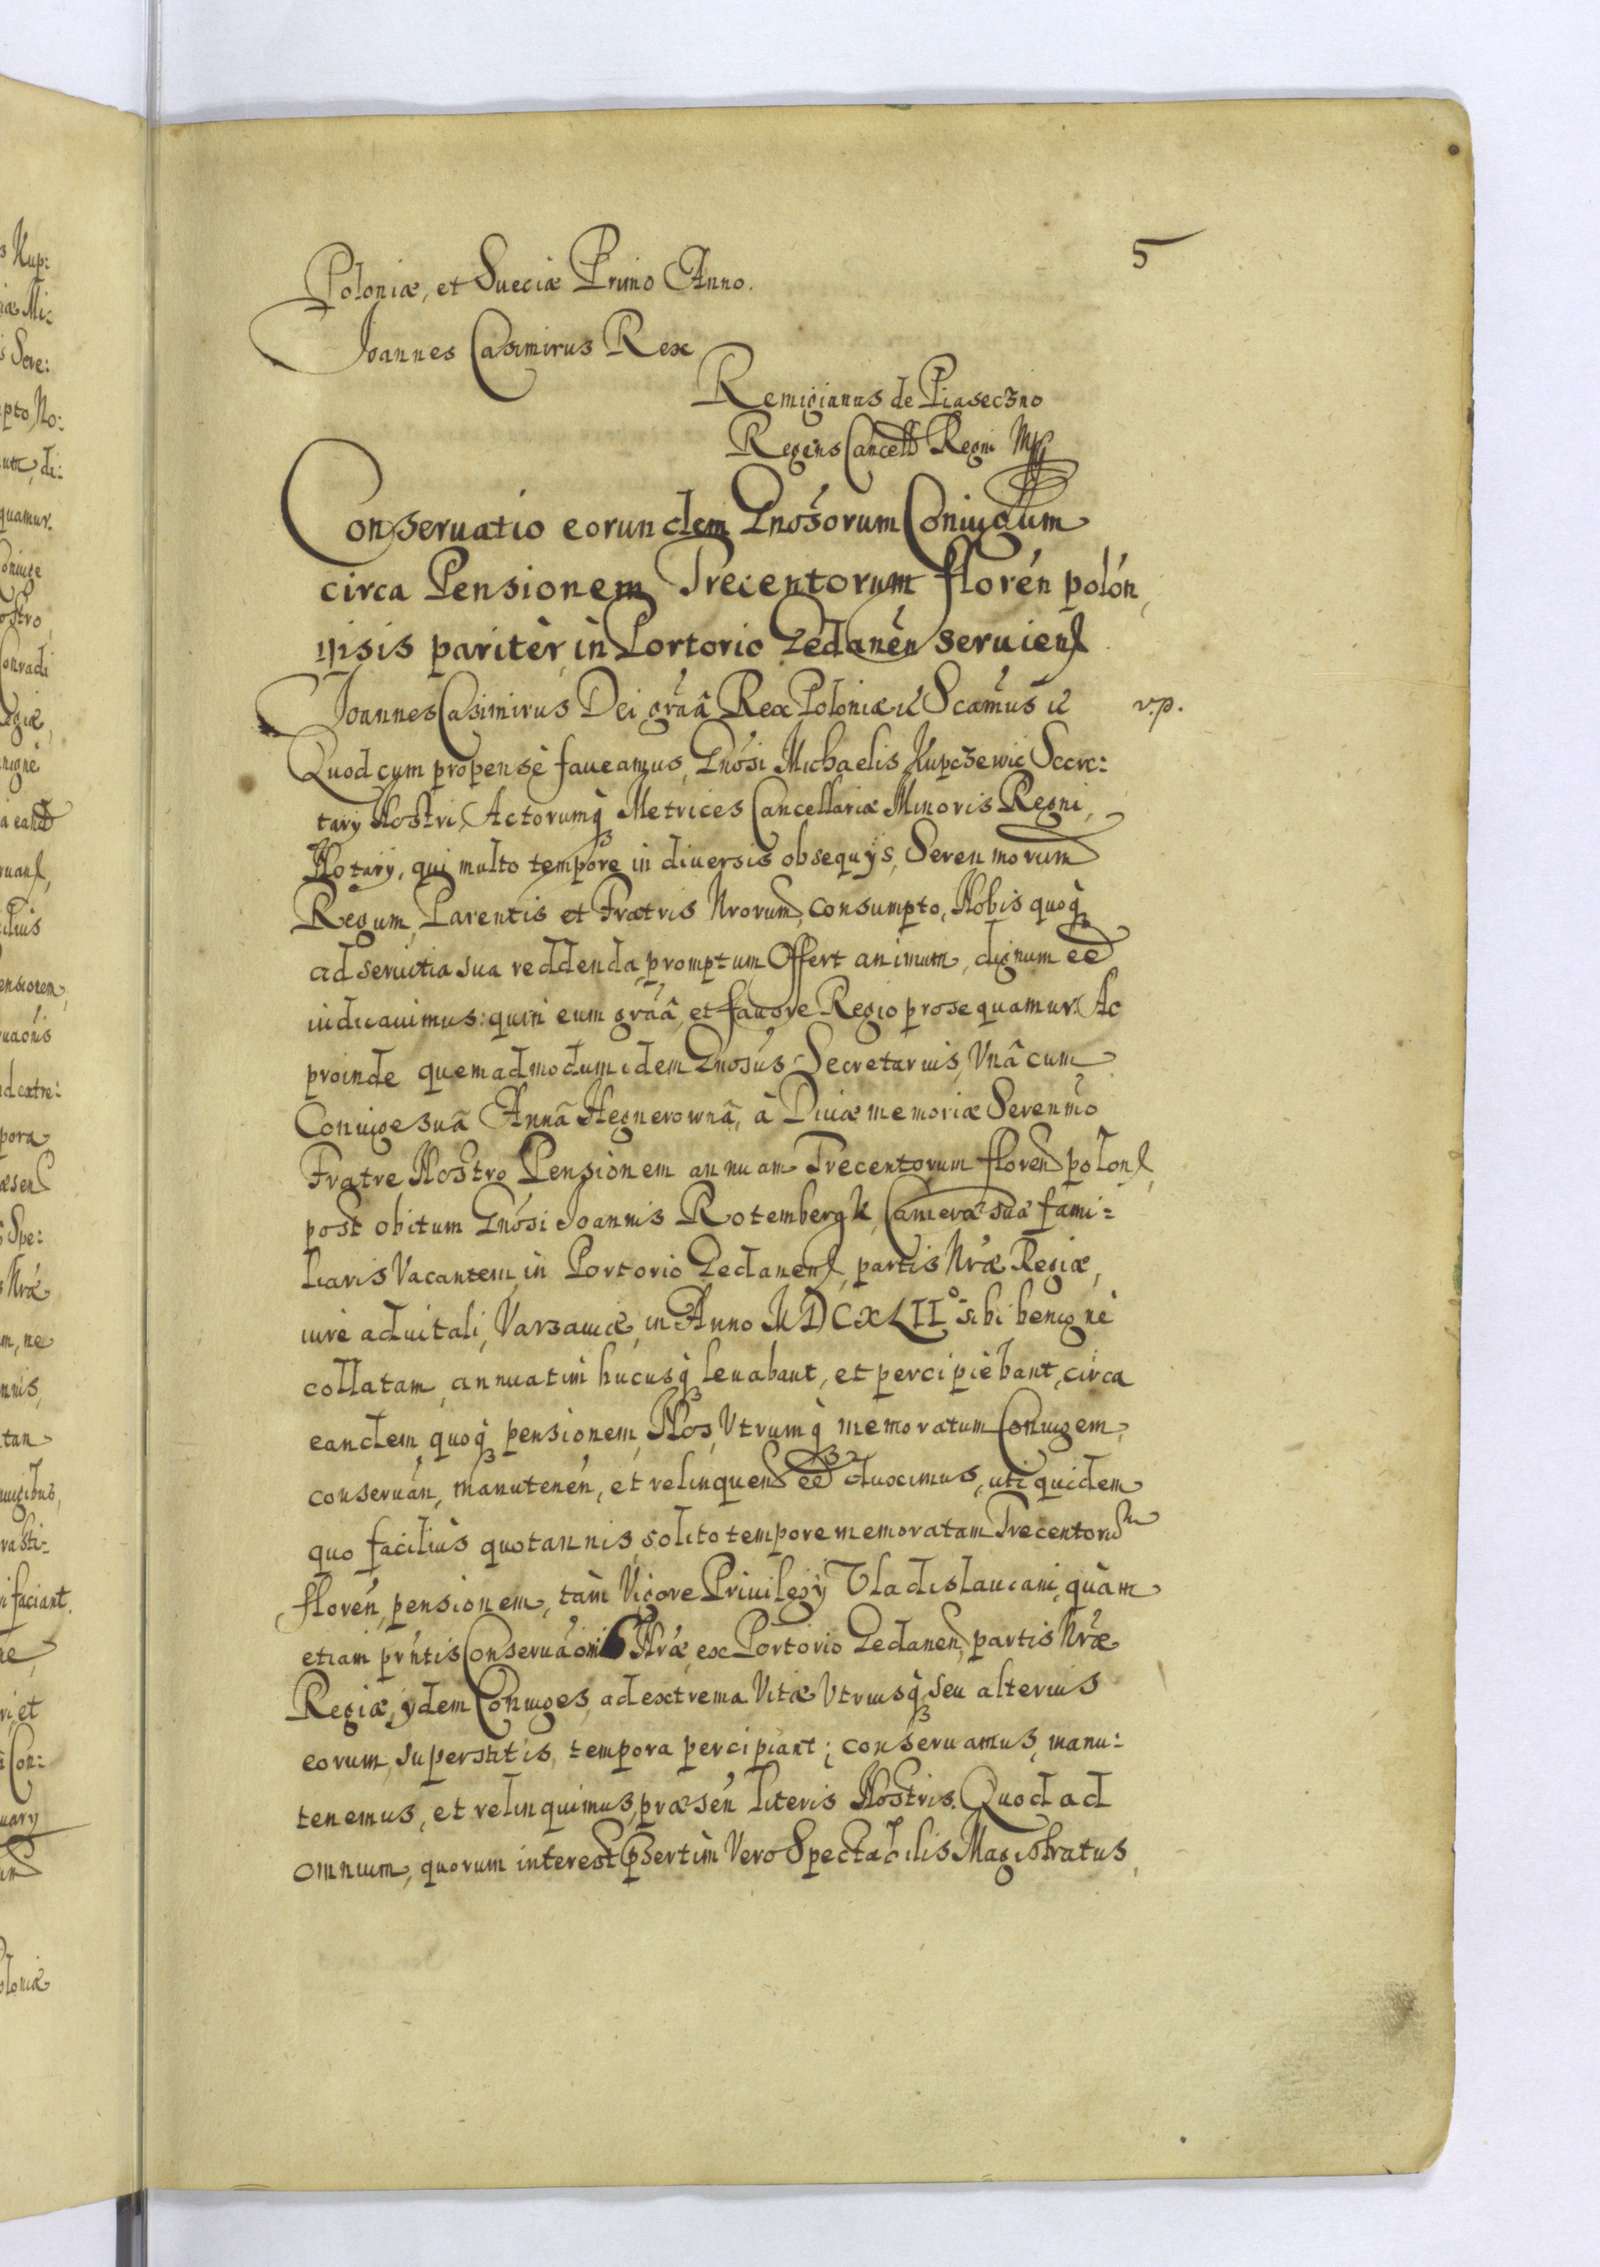 5
Poloniæ, et Sueciæ Primo Anno.
Joannes Casimirus Rex
Remigianus de Piaseczno
Regens Cancell Regni Mpp
Conseruatio eorundem Gnosorum Coniugum
circa Pensionem Trecentorum florén polón,
ipsis paritèr in Portorio Gedanén seruien
Joannes Casimirus Dei gráâ Rex Poloniæ etc Scamus etc v.p.
Quod cum propensè faueamus, Gnósi Michaelis Kupczewic Secre:
tary Nostri, Actorumq́ Metrices Cancellariæ Minoris Regni,
Notary, qui multo tempore in diuersis obsequys, Serenmorum
Regum, Parentis et Fratris Nrorum, consumpto, Nobis quoq́
ad seruitia sua reddenda promptum Offert animum, dignum eē
iudicauimus: quin eum gráâ, et fauore Regio prosequamur. Ac
proinde quemadmodum idem Gnosus Secretarius, Vnâ cum
Coniuge suâ Annâ Hegnerownâ, à Diuæ memoriæ Serenmo
Fratre Nostro Pensionem annuam Trecentorum floren polon,
post obitum Gnósi Joannis Rotembergk, Cameræ suæ fami:
liaris Vacantem, in Portorio Gedanen, partis Nræ Regiæ,
iure aduitali, Varsauiæ, in Anno MDCXLII° sibi benignè
collatam, annuatim hucusq́ leuabant, et percipiebant, circa
eandem quoq́ pensionem, Nos, Vtrumq́ memoratum Coniugem,
conseruán, manutenén, et relinquen eē duximus, uti quidem
quo facilius quotannis, solito tempore memoratam Trecentorum
florén, pensionem, tàm Vigore Priuilegy Vladislauiani, quàm
etiam prńtis Conseruáonis Nræ, ex Portorio Gedanen, partis Nræ
Regiæ, ydem Coniuges, ad extrema Vitæ Vtriusq́, seu alterius
eorum superstitis, tempora percipiant; conseruamus, manu:
tenemus, et relinquimus, præsén literis Nostris. Quod ad
omnium, quorum interest, psertìm Vero Spectabilis Magistratus,